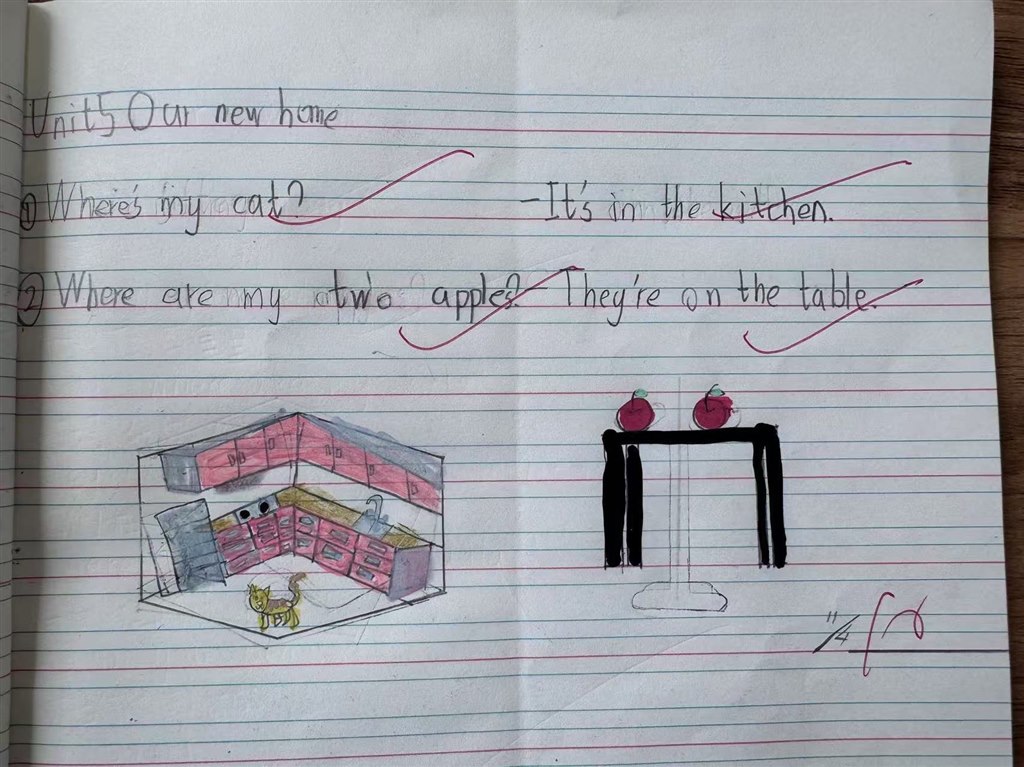 Unit5 Our new home
① Where's my cat? -It's in the kitchen.
② Where are my two apples? - They're on the table.
11/4